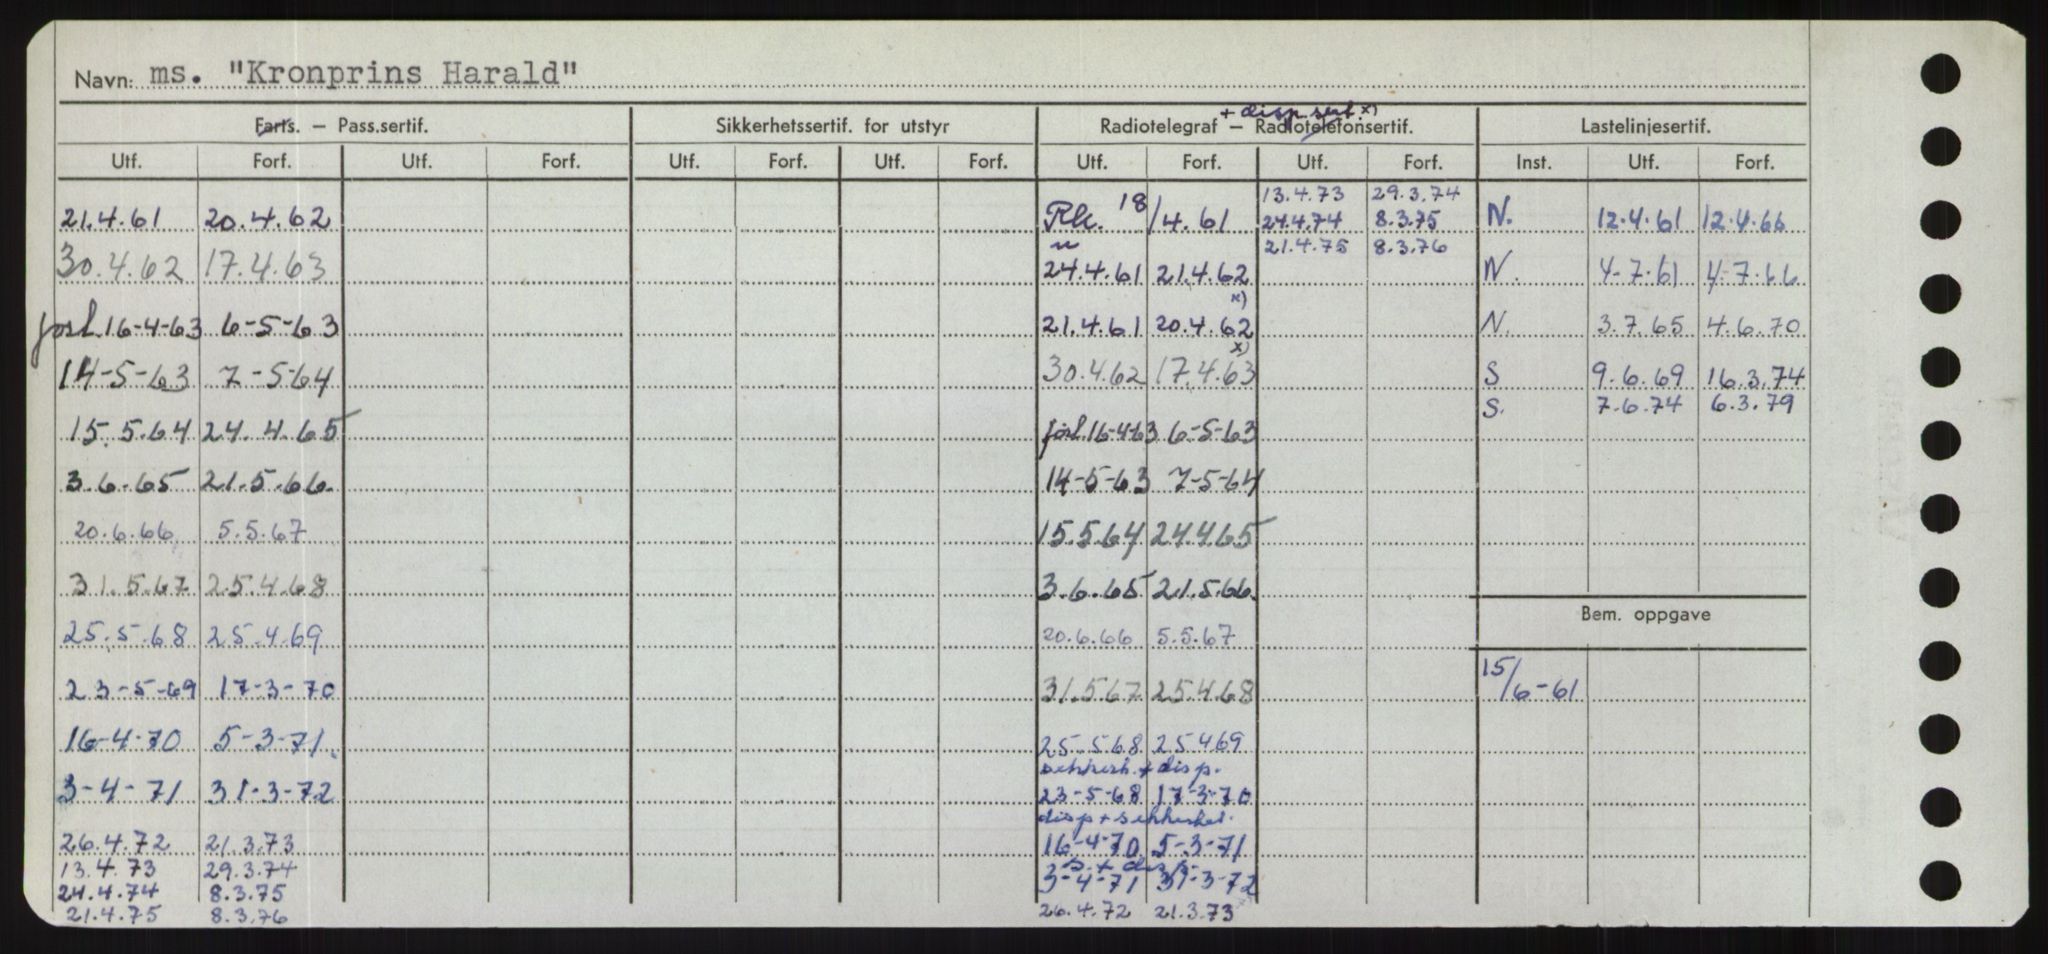 Navn: ms. "Kronprins Harald"
+ disp sert. x)
Farts. – Pass.sertif. Sikkerhetssertif. for utstyr Radiotelegraf – Radiotelefonsertif. Lastelinjesertif.
Utf. Forf. Utf. Forf. Utf. Forf. Utf. Forf. Utf. Forf. Utf. Forf. Inst. Utf. Forf.
13.4.73 29.3.74
21.4.61 20.4.62 18/4.61 24.4.74 8.3.75 N. 12.4.61 12.4.66
" 21.4.75 8.3.76
30.4.62 17.4.63 24.4.61 21.4.62 N. 4-7.61 4-7.66
x)
forl. 16-4-63 6-5-63 21.4.61 20.4.62 N. 3.7.65 4.6.70
x)
14-5-63 7-5-64 30.4.62 17.4.63 S 9.6.69 16.3.74
S. 7.6.74 6.3.79
15.5.64 24.4.65 forl. 16-4-63 6-5-63
3.6.65 21.5.66. 14-5-63 7-5-64
20.6.66 5.5.67 15.5.64 24.4.65
31.5.67 25.4.68 3.6.65 21.5.66.
Bem. oppgave
25.5.68 25.4.69 20.6.66 5.5.67
23-5-69 17-3-70 31.5.67 25.4.68 15/6-61
16-4-70 5-3-71. 25.5.68 25.4.69
sikkerh. + disp.
3-4-71 31-3-72 23-5-68 17-3-70
disp + sikkerhet.
26.4.72 21.3.73 16-4-70 5-3-71
s. + disp.
13.4.73 29.3.74 3-4-71 31-3-72
24.4.74 8.3.75
21.4.75 8.3.76 26.4.72 21.3.73